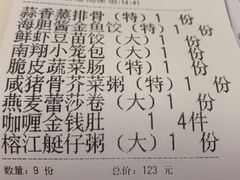 08:14:41
蒜香蒸排骨(特)1 份
海胆酱金鱼饺(特)1 份
鲜虾豆苗饺(大)1 份
南翔小笼包(大)1 份
脆皮蔬菜肠(特)1 份
咸猪骨芥菜粥(特)1 份
燕麦蕾莎卷(大)1 份
咖喱金钱肚 1 4件
榕江艇仔粥(大)1 份
数量: 9 份 总价: 123 元